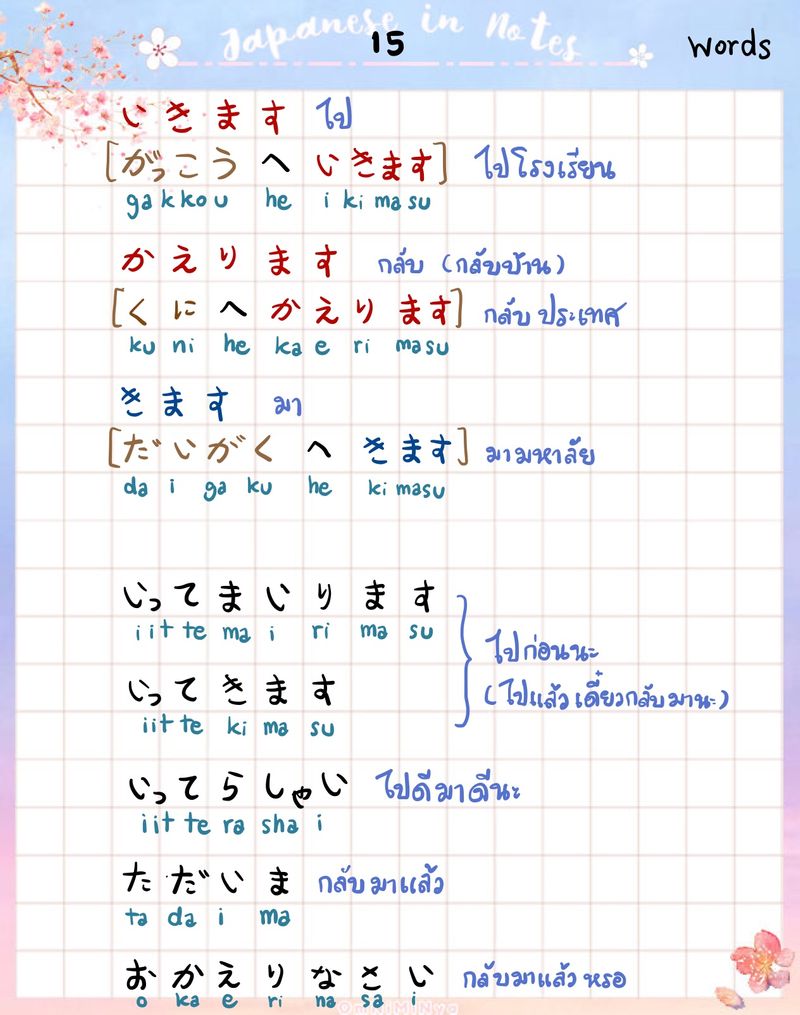 Japanese in Notes
15 Words
いきます ไป
[がっこう へ いきます] ไปโรงเรียน
gakkou he ikimasu
かえります กลับ (กลับบ้าน)
[くに へ かえります] กลับประเทศ
ku ni he ka e ri masu
きます มา
[だいがく へ きます] มามหาลัย
da i ga ku he ki masu
いってまいります
iit te ma i ri ma su
ไปก่อนนะ
(ไปแล้วเดี๋ยวกลับมานะ)
いってきます
iit te ki ma su
いってらしゃい ไปดีมาดีนะ
iit te ra sha i
ただいま กลับมาแล้ว
ta da i ma
おかえりなさい กลับมาแล้วหรอ
o ka e ri na sa i